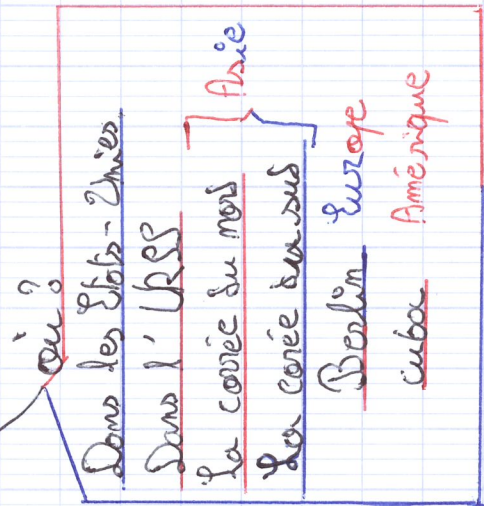 où ?
Dans les Etats-Unies
Dans l'URSS
La corrée du nord
La corée du sud
Asie
Berlin Europe
cuba Amérique